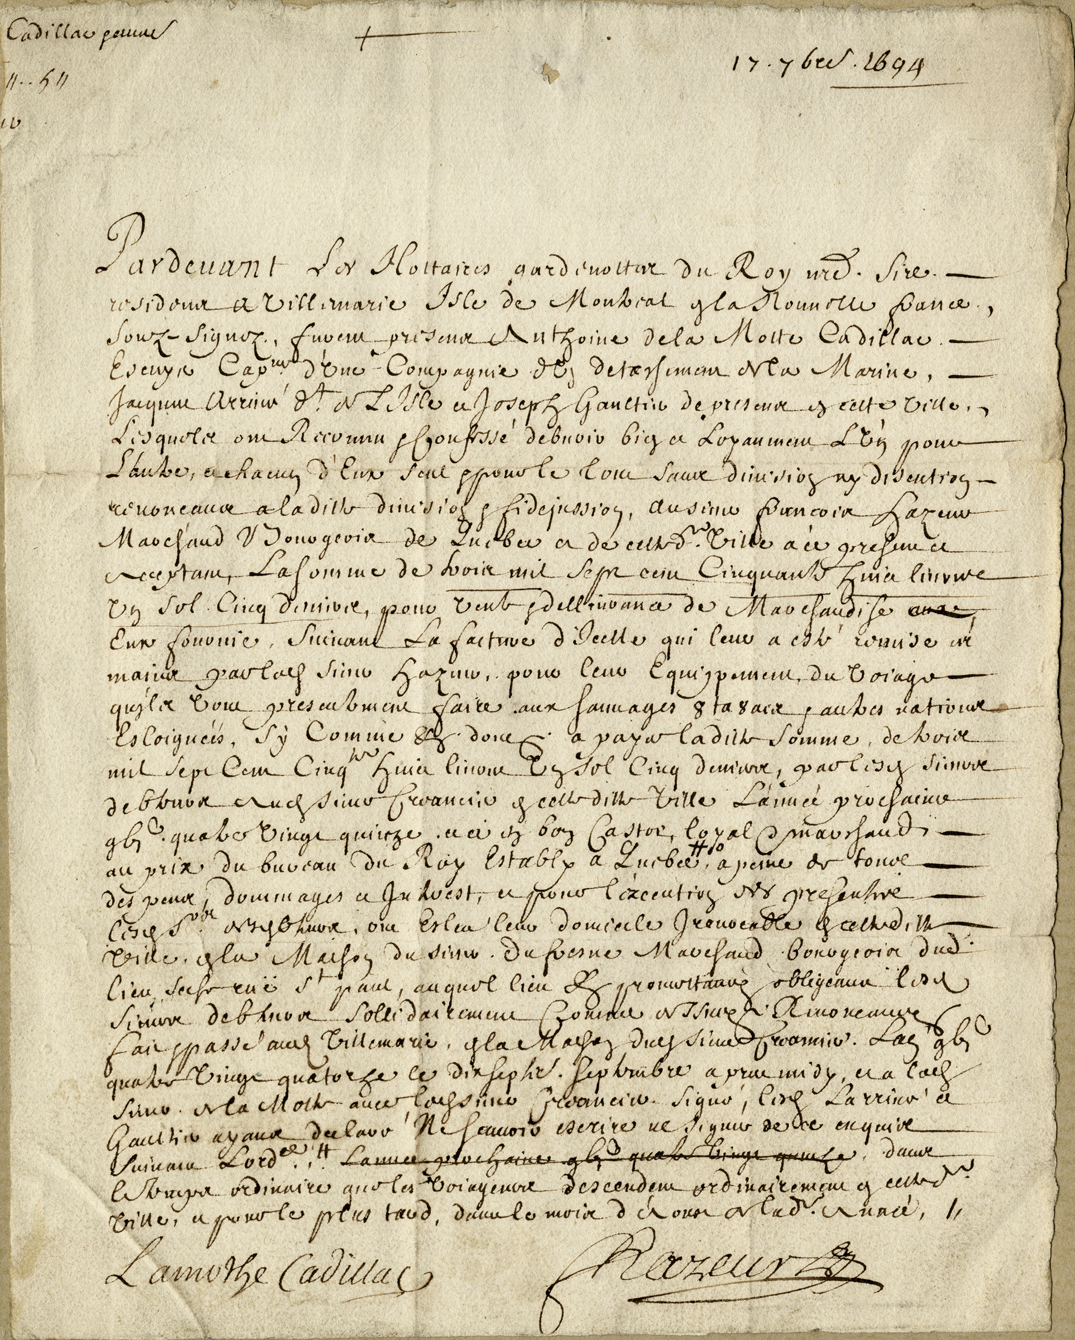 Cadillac
17. 7bre. 1694
Pardevant Les Nottaires gardenottes du Roy nred. Sire.
residens a Villemarie Isle de Montreal en la Nouvelle france,
Souz-Signez, furent presens Anthoine de la Motte Cadillac
Escuyer Capne d'Une Compagnie du detachement de la Marine,
Jacques Arrivé dt de L'Isle et Joseph Gaultier de present en cette Ville,
Lesquels ont Reconnu & Confessé debvoir bien et Loyaument L'Un pour
L'autre, et chacun d'Eux seul & pour le tout sans division ny discution
renonceans a ladite division & fidejussion, au sieur francois hazeur
Marchand Bourgeois de Quebec et de cette de. Ville a ce present et
acceptant, La somme de trois mil sept cent Cinquante huict livres
Un sol Cinq deniers, pour vente & dellivrance de Marchandise
Eux fournie, Suivant La facture d'Icelle qui leur a esté remise es
mains par led sieur hazeur, pour leur Equippement du Voiage
qu'ils vont presentement faire aux sauvages 8ta8acs & autres nations
Esloignées, Sy Comme &c. donc &c. a payer ladite somme, de trois
mil sept Cent Cinqte huict livres Un sol Cinq deniers, par lesd sieurs
debteurs aud sieur Creancier en cette dite Ville L'année prochaine
gbc quatre Vingt quinze en bon Castor, loyal & marchand
au prix du bureau du Roy Estably a Quebec, a peine de tous
despens, dommages et Interest, et pour l'execution des presentes
lesd Srs debteurs, ont Esleu leur domicile Irrevocable en cette dite
Ville, en la Maison du sieur Dufresne Marchand bourgeois dud
lieu, seize rüe St paul, auquel lieu &c promettans obligeans lesd
sieurs debteurs sollidairement Comme dessus & Renonceans &c
fait & passé aud Villemarie, en la Maison dud sieur Creancier. L'an gbc
quatre Vingt quatorze le dix septe. Septembre apres midy, et a led
sieur de la Motte avec led sieur Creancier signé, lesd Larrivé et
Gaultier ayans declaré Ne scavoir escrire ne signer de ce enquis
suivant L'ordce. # L'année prochaine gbc quatre Vingt quinze, dans
le temps ordinaire que les Voiageurs descendent ordinairement en cette de
Ville, et pour le plus tard, dans le mois d'Aoust de lade. Année, //
Lamothe Cadillac
fhazeur